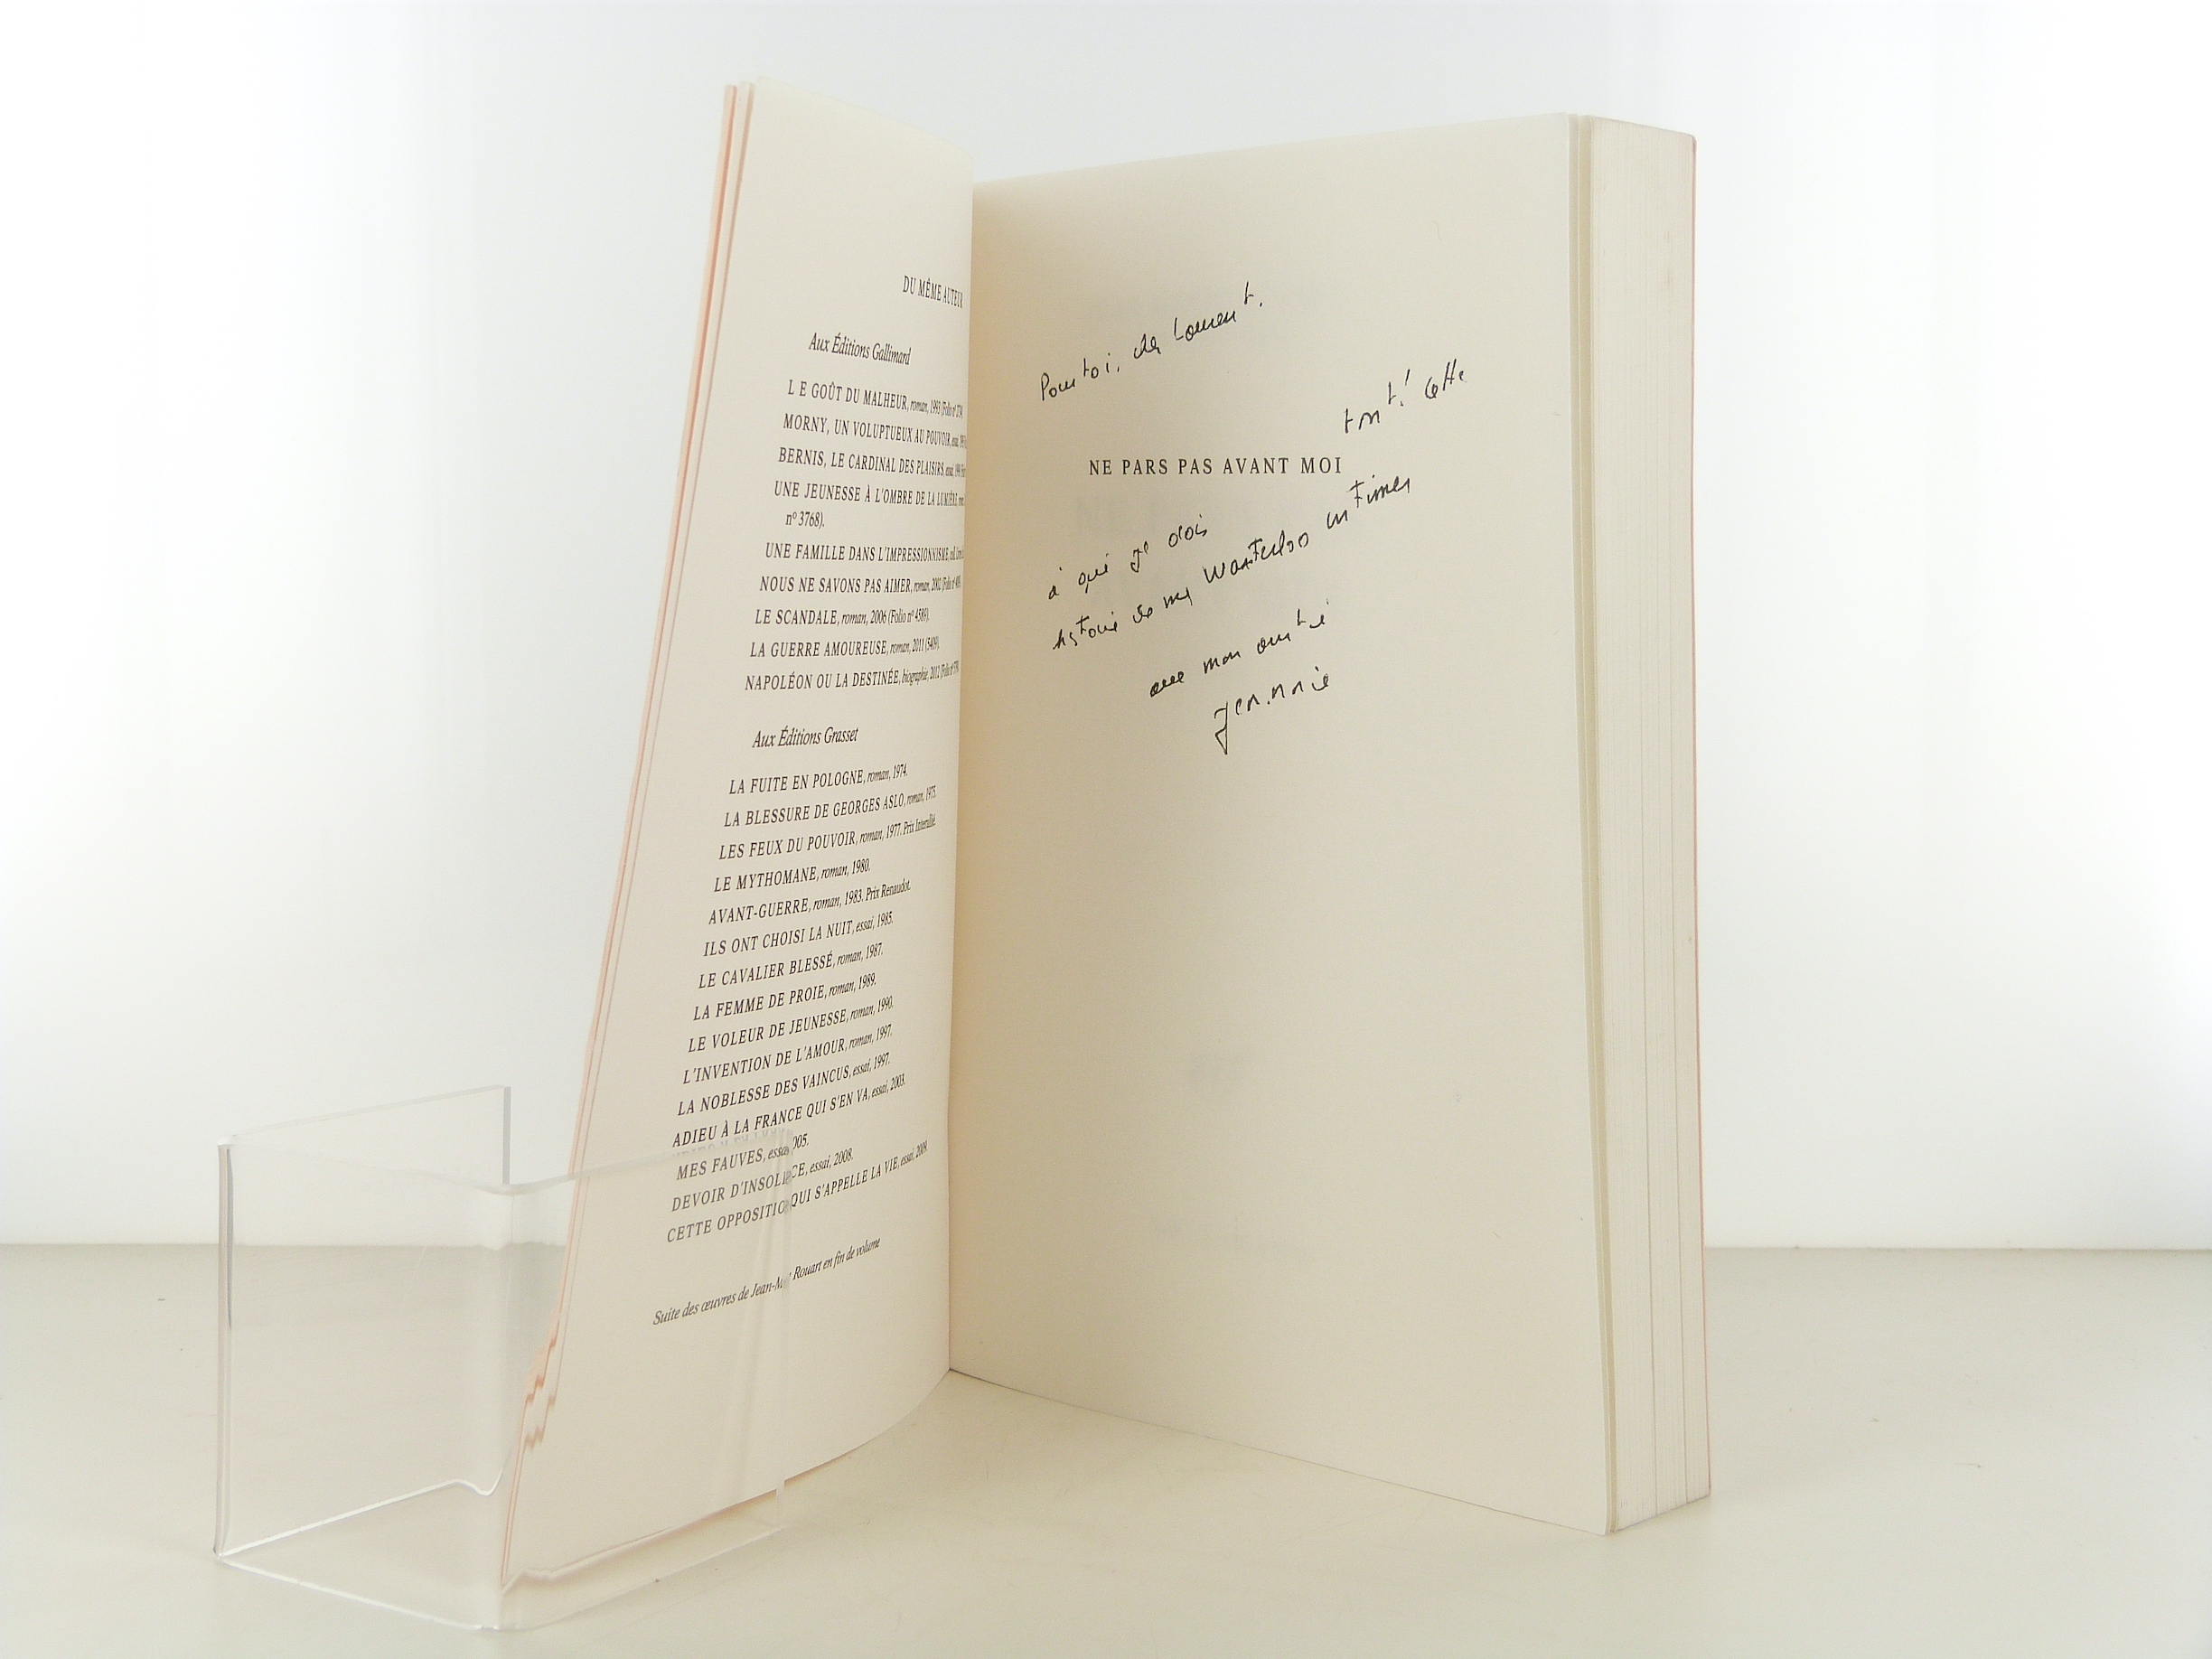 DU MÊME AUTEUR
Aux Éditions Gallimard
L E GOÛT DU MALHEUR, roman, 1993 (Folio nº
MORNY, UN VOLUPTUEUX AU POUVOIR, essai,
BERNIS, LE CARDINAL DES PLAISIRS, essai,
UNE JEUNESSE À L'OMBRE DE LA LUMIÈRE,
nº 3768).
UNE FAMILLE DANS L'IMPRESSIONNISME,
NOUS NE SAVONS PAS AIMER, roman, 2002 (Folio nº
LE SCANDALE, roman, 2006 (Folio nº 4589).
LA GUERRE AMOUREUSE, roman, 2011 (5409).
NAPOLÉON OU LA DESTINÉE, biographie, 2012 (Folio nº
Aux Éditions Grasset
LA FUITE EN POLOGNE, roman, 1974.
LA BLESSURE DE GEORGES ASLO, roman, 1975.
LES FEUX DU POUVOIR, roman, 1977. Prix Interallié.
LE MYTHOMANE, roman, 1980.
AVANT-GUERRE, roman, 1983. Prix Renaudot.
ILS ONT CHOISI LA NUIT, essai, 1985.
LE CAVALIER BLESSÉ, roman, 1987.
LA FEMME DE PROIE, roman, 1989.
LE VOLEUR DE JEUNESSE, roman, 1990.
L'INVENTION DE L'AMOUR, roman, 1997.
LA NOBLESSE DES VAINCUS, essai, 1997.
ADIEU À LA FRANCE QUI S'EN VA, essai, 2003.
MES FAUVES, essai, 2005.
DEVOIR D'INSOLENCE, essai, 2008.
CETTE OPPOSITION QUI S'APPELLE LA VIE, essai, 2009.
Suite des œuvres de Jean-Marie Rouart en fin de volume
Pour toi, Laurent.
NE PARS PAS AVANT MOI
à qui je dois tant! Cette
histoire de mes Waterloo intimes
avec mon amitié
Jean-Marie